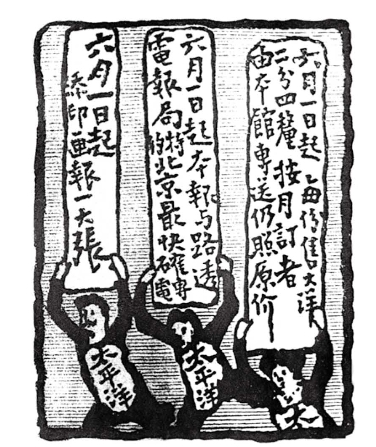 六月一日起每份售大洋
二分四釐按月訂者
由本館專送仍照原价
六月一日起本報与路透
電報局特約北京最快確專電
六月一日起
添印画報一大張
太
太平洋
太平洋